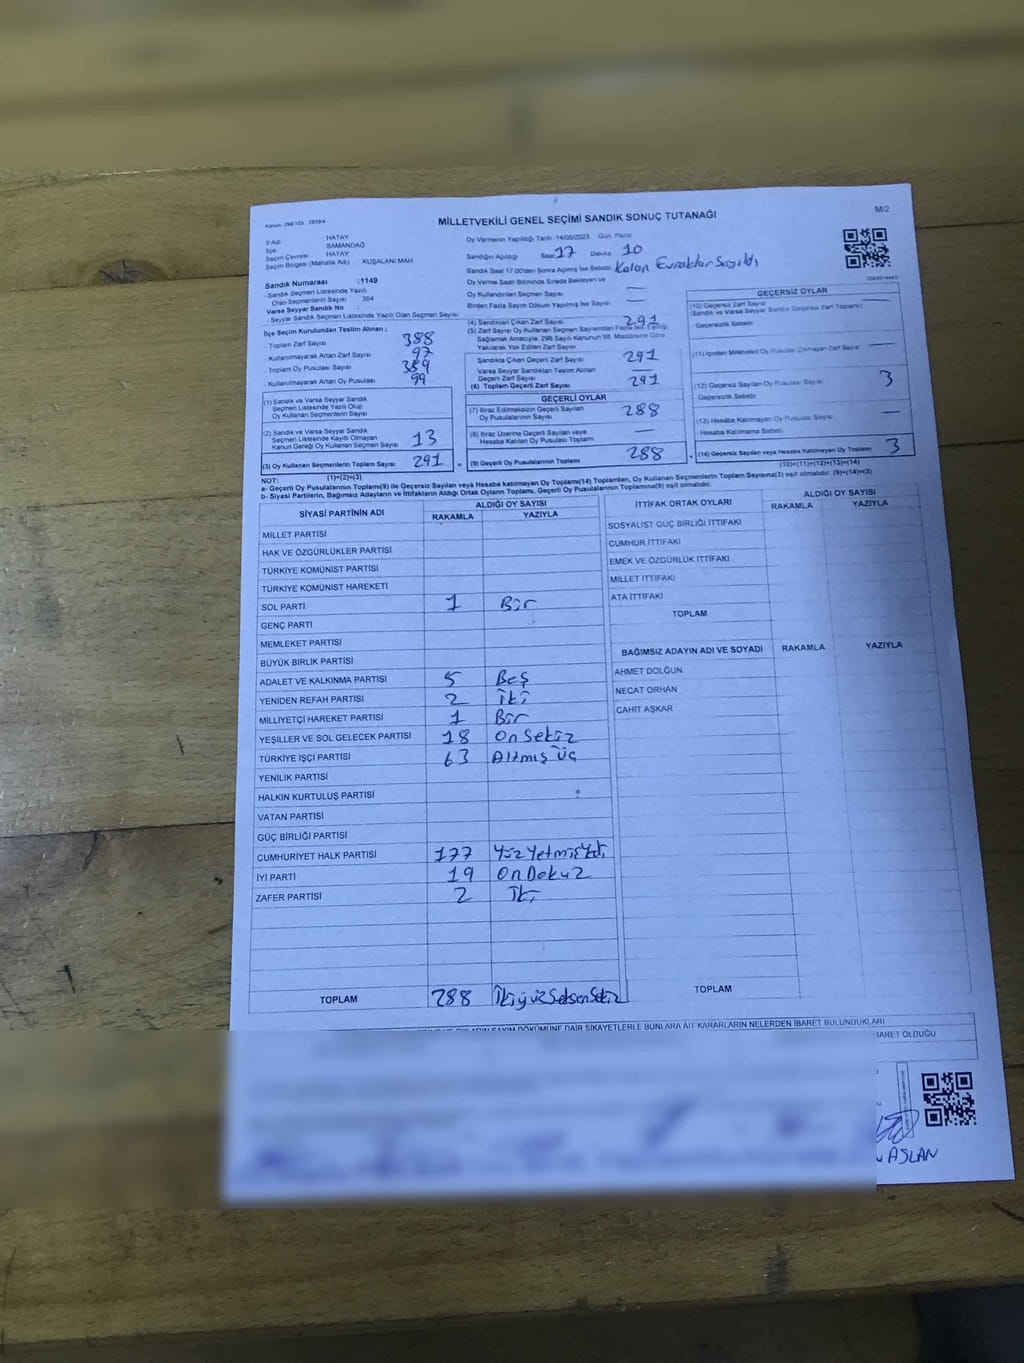 MİLLETVEKİLİ GENEL SEÇİMİ SANDIK SONUÇ TUTANAĞI
M/2
İl Adı HATAY
İlçe SAMANDAĞ
Seçim Çevresi HATAY
Seçim Bölgesi (Mahalle Adı) KUŞALANI MAH
Sandık Numarası :1149
Sandık Seçmen Listesinde Yazılı
Olan Seçmenlerin Sayısı 354
Varsa Seyyar Sandık No :
Seyyar Sandık Seçmen Listesinde Yazılı Olan Seçmen Sayısı
Oy Vermenin Yapıldığı Tarih :14/05/2023 Gün: Pazar
Sandığın Açıldığı Saat 17 Dakika 10
Sandık Saat 17:00'den Sonra Açılmış İse Sebebi Kalan Evraklar Sayıldı
Oy Verme Saati Bitiminde Sırada Bekleyen ve
Oy Kullandırılan Seçmen Sayısı —
Birden Fazla Sayım Dökümü Yapılmış İse Sayısı —
İlçe Seçim Kurulundan Teslim Alınan ;
- Toplam Zarf Sayısı 388
- Kullanılmayarak Artan Zarf Sayısı 97
- Toplam Oy Pusulası Sayısı 389
- Kullanılmayarak Artan Oy Pusulası 99
(1) Sandık ve Varsa Seyyar Sandık
Seçmen Listesinde Yazılı Olup
Oy Kullanan Seçmenlerin Sayısı
(2) Sandık ve Varsa Seyyar Sandık
Seçmen Listesinde Kayıtlı Olmayan
Kanun Gereği Oy Kullanan Seçmen Sayısı 13
(3) Oy Kullanan Seçmenlerin Toplam Sayısı 291
(1)+(2)=(3)
(4) Sandıktan Çıkan Zarf Sayısı 291
(5) Zarf Sayısı Oy Kullanan Seçmen Sayısından Fazla ise, Eşitliği
Sağlamak Amacıyla, 298 Sayılı Kanunun 98. Maddesine Göre
Yakılarak Yok Edilen Zarf Sayısı
Sandıkta Çıkan Geçerli Zarf Sayısı 291
Varsa Seyyar Sandıktan Teslim Alınan
Geçerli Zarf Sayısı —
(6) Toplam Geçerli Zarf Sayısı 291
GEÇERLİ OYLAR
(7) İtiraz Edilmeksizin Geçerli Sayılan
Oy Pusulalarının Sayısı 288
(8) İtiraz Üzerine Geçerli Sayılan veya
Hesaba Katılan Oy Pusulası Toplamı —
(9) Geçerli Oy Pusulalarının Toplamı 288
GEÇERSİZ OYLAR
(10) Geçersiz Zarf Sayısı —
(Sandık ve Varsa Seyyar Sandık Geçersiz Zarf Toplamı)
Geçersizlik Sebebi
(11) İçinden Milletvekili Oy Pusulası Çıkmayan Zarf Sayısı —
(12) Geçersiz Sayılan Oy Pusulası Sayısı 3
Geçersizlik Sebebi
(13) Hesaba Katılmayan Oy Pusulası Sayısı —
Hesaba Katılmama Sebebi
(14) Geçersiz Sayılan veya Hesaba Katılmayan Oy Toplamı 3
(10)+(11)+(12)+(13)=(14)
NOT:
a- Geçerli Oy Pusulalarının Toplamı(9) ile Geçersiz Sayılan veya Hesaba Katılmayan Oy Toplamı(14) Toplamları, Oy Kullanan Seçmenlerin Toplam Sayısına(3) eşit olmalıdır. (9)+(14)=(3)
b- Siyasi Partilerin, Bağımsız Adayların ve İttifakların Aldığı Ortak Oyların Toplamı, Geçerli Oy Pusulalarının Toplamına(9) eşit olmalıdır.
SİYASİ PARTİNİN ADI ALDIĞI OY SAYISI
RAKAMLA YAZIYLA
MİLLET PARTİSİ
HAK VE ÖZGÜRLÜKLER PARTİSİ
TÜRKİYE KOMÜNİST PARTİSİ
TÜRKİYE KOMÜNİST HAREKETİ
SOL PARTİ 1 Bir
GENÇ PARTİ
MEMLEKET PARTİSİ
BÜYÜK BİRLİK PARTİSİ
ADALET VE KALKINMA PARTİSİ 5 Beş
YENİDEN REFAH PARTİSİ 2 İki
MİLLİYETÇİ HAREKET PARTİSİ 1 Bir
YEŞİLLER VE SOL GELECEK PARTİSİ 18 On Sekiz
TÜRKİYE İŞÇİ PARTİSİ 63 Altmış Üç
YENİLİK PARTİSİ
HALKIN KURTULUŞ PARTİSİ
VATAN PARTİSİ
GÜÇ BİRLİĞİ PARTİSİ
CUMHURİYET HALK PARTİSİ 177 Yüz Yetmiş Yedi
İYİ PARTİ 19 On Dokuz
ZAFER PARTİSİ 2 İki
TOPLAM 288 İkiyüz Seksen Sekiz
İTTİFAK ORTAK OYLARI ALDIĞI OY SAYISI
RAKAMLA YAZIYLA
SOSYALİST GÜÇ BİRLİĞİ İTTİFAKI
CUMHUR İTTİFAKI
EMEK VE ÖZGÜRLÜK İTTİFAKI
MİLLET İTTİFAKI
ATA İTTİFAKI
TOPLAM
BAĞIMSIZ ADAYIN ADI VE SOYADI RAKAMLA YAZIYLA
AHMET DOLĞUN
NECAT ORHAN
CAHİT AŞKAR
TOPLAM
SAYIM DÖKÜMÜNE DAİR ŞİKAYETLERLE BUNLARA AİT KARARLARIN NELERDEN İBARET BULUNDUKLARI
ASLAN